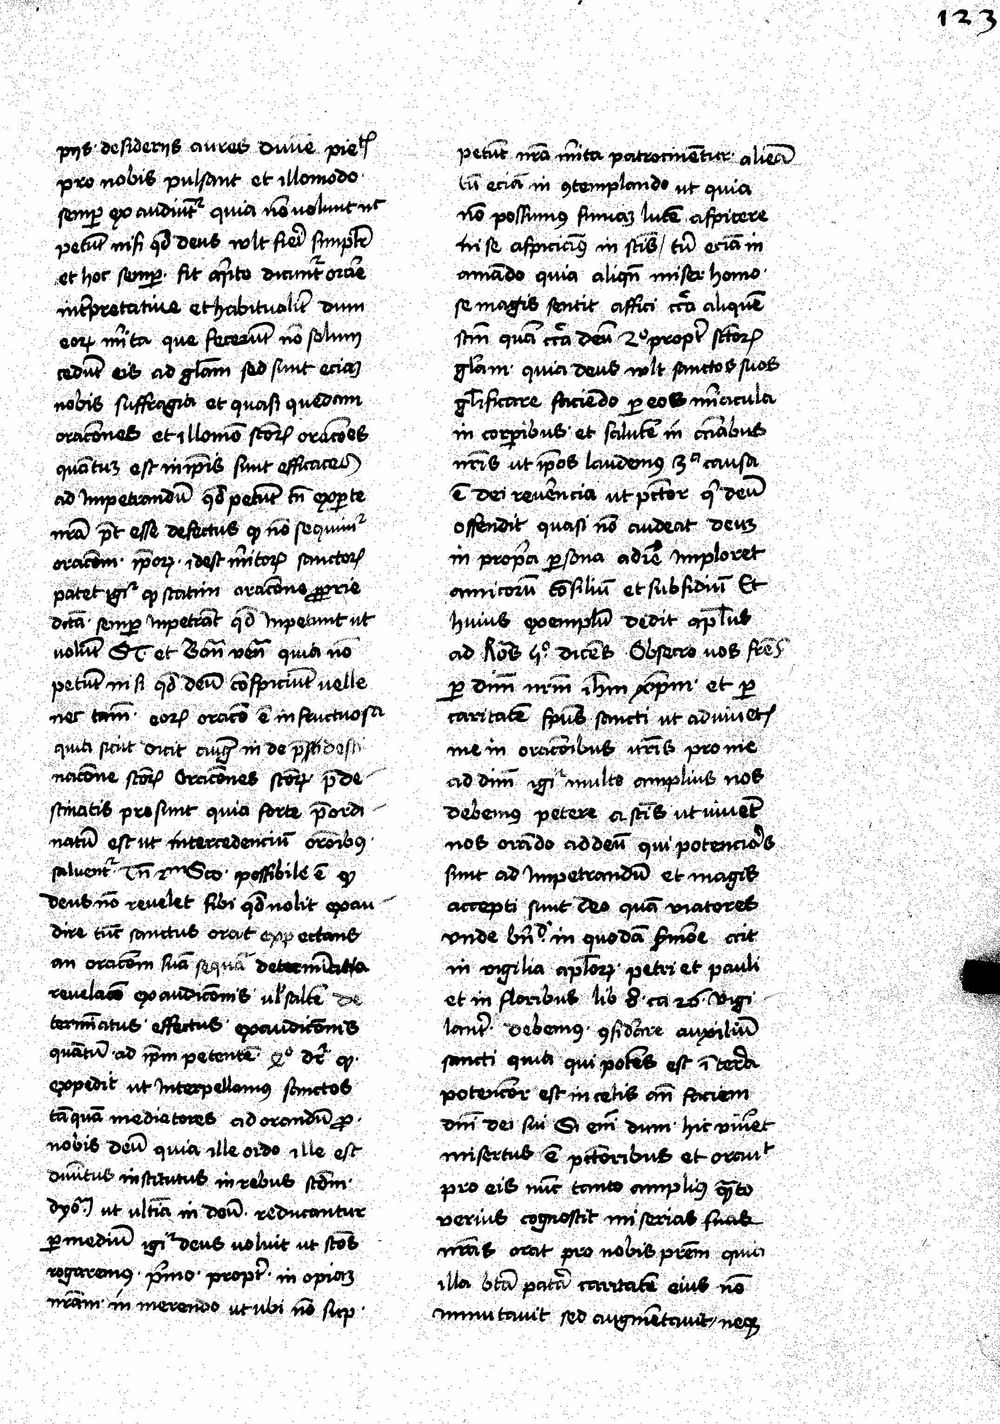 123
pijs desiderijs aures divine pietatis
pro nobis pulsant et illo modo
semper exaudiuntur quia non volunt nec
petunt nisi quod deus vult fieri simpliciter
et hoc semper fit alio dicuntur orare
interpretative et habitualiter dum
eorum merita que fecerunt non solum
cedunt eis ad gloriam sed sunt eciam
nobis suffragia et quasi quedam
oraciones et illo modo sanctorum oraciones
quantum est in ipsis sunt efficaces
ad impetrandum quod petunt tamen ex parte
nostra potest esse defectus quod non sequimur
oracionem ipsorum idest meritorum sanctorum
patet igitur quod sanctorum oracione proprie
dicta semper impetrant quod impetunt ut
volunt S T et Bonaven quia non
petunt nisi quod deum conspiciunt velle
nec tamen eorum oracio est infructuosa
quia sicut dicit aug in de predesti
nacione sanctorum Oraciones sanctorum prede
stinatis prosunt quia forte preordi
natum est ut intercedencium oracionibus
salventur Tamen Sco possibile est quod
deus non revelet sibi quod nolit exau
dire tunc sanctus orat expectans
an oracionem suam sequatur determinata
revelacio exaudicionis vel saltem de
terminatus effectus exaudicionis
quantum ad ipsum petentem 2o dicitur quod
expedit ut interpellamus sanctos
tamquam mediatores ad orandum pro
nobis deum quia ille ordo ille est
divinitus institutus in rebus secundum
dyo ut ultima in deum reducantur
per medium igitur deus voluit ut sanctos
rogaremus primo propter inopiam
nostram in merendo ut ubi non sup
petunt nostra merita patrocinentur aliena
tum eciam in contemplando ut quia
non possumus summam lucem aspicere
in se aspiciamus in sanctis tum eciam in
amando quia aliquando miser homo
se magis sentit affici circa aliquem
sanctum quam circa deum 2o propter sanctorum
gloriam quia deus vult sanctos suos
glorificare faciendo per eos miracula
in corporibus et salutem in animabus
nostris ut ipsos laudemus 3a causa
est dei reverencia ut peccator qui deum
offendit quasi non audeat deum
in propria persona adire imploret
amicorum consilium et subsidium Et
huius exemplum dedit apostolus
ad Ros dicens Obsecro vos fratres
per dominum nostrum ihm xpm et per
caritatem spiritus sancti ut adiuvetis
me in oracionibus vestris pro me
ad dominum igitur multo amplius nos
debemus petere a sanctis ut iuvent
nos orando ad deum qui potenciores
sunt ad impetrandum et magis
accepti sunt deo quam viatores
unde bernardus in quodam sermone ait
in vigilia apostolorum petri et pauli
et in floribus lib 8 ca 26 Vigi
lanter debemus considerare auxilium
sancti quia qui potens est in terra
potencior est in celis ante faciem
domini dei sui Si enim dum hic viveret
misertus est peccatoribus et oravit
pro eis nunc tanto amplius quanto
verius cognoscit miserias suas
nostras orat pro nobis patrem quia
illa beata patria caritatem eius non
mutavit sed augmentavit neque